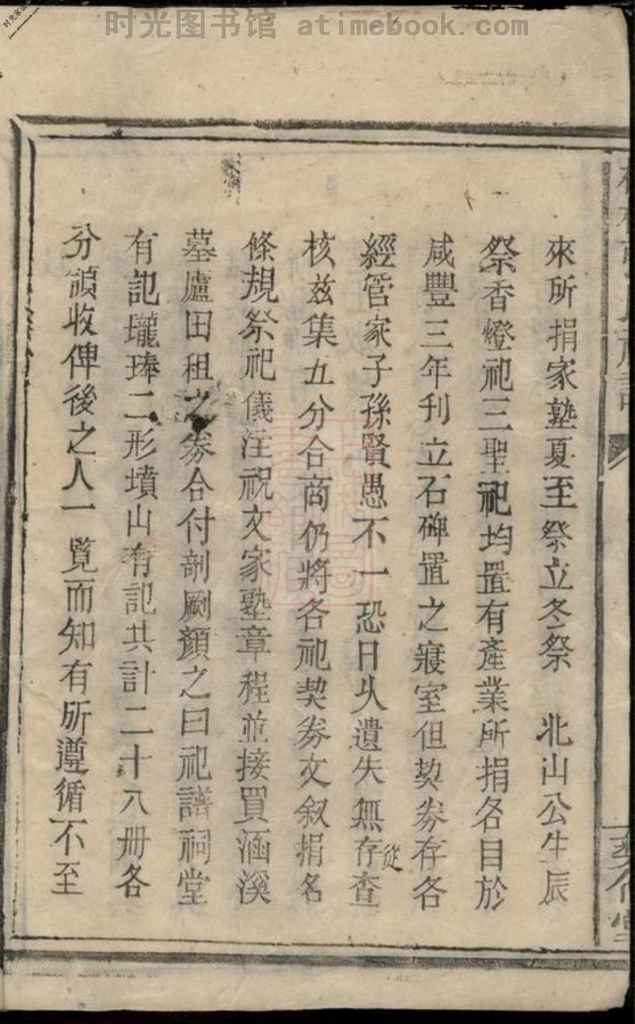 时光图书馆 atimebook.com
來所捐家塾夏至祭立冬祭 北山公生辰
祭香燈祀三聖祀均置有產業所捐名目於
咸豐三年刋立石碑置之寢室但契劵存各
經管家子孫賢愚不一恐日乆遺失無存從查
核兹集五分合商仍將各祀契劵文叙捐名
條規祭祀儀注祝文家塾章程並接買涵溪
墓廬田租之劵合付剞劂顏之曰祀譜祠堂
有記壠瑧二形墳山有記共計二十八冊各
分領收俾後之人一覽而知有所遵循不至